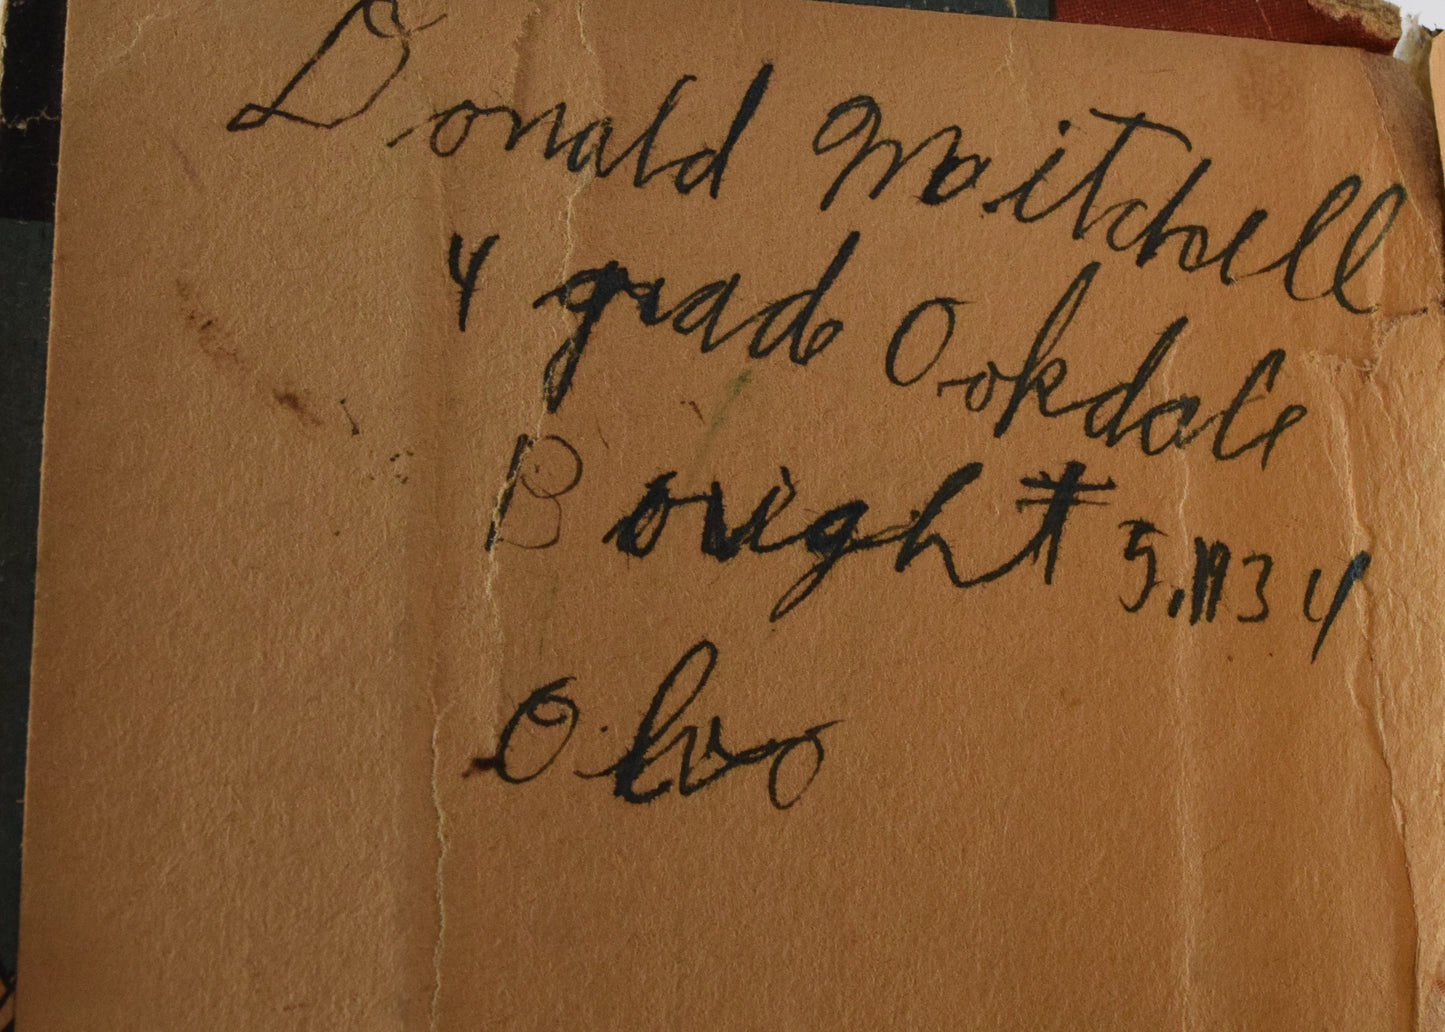 Donald Maitchell
4 grad Ookdale
Bought 5, 1934